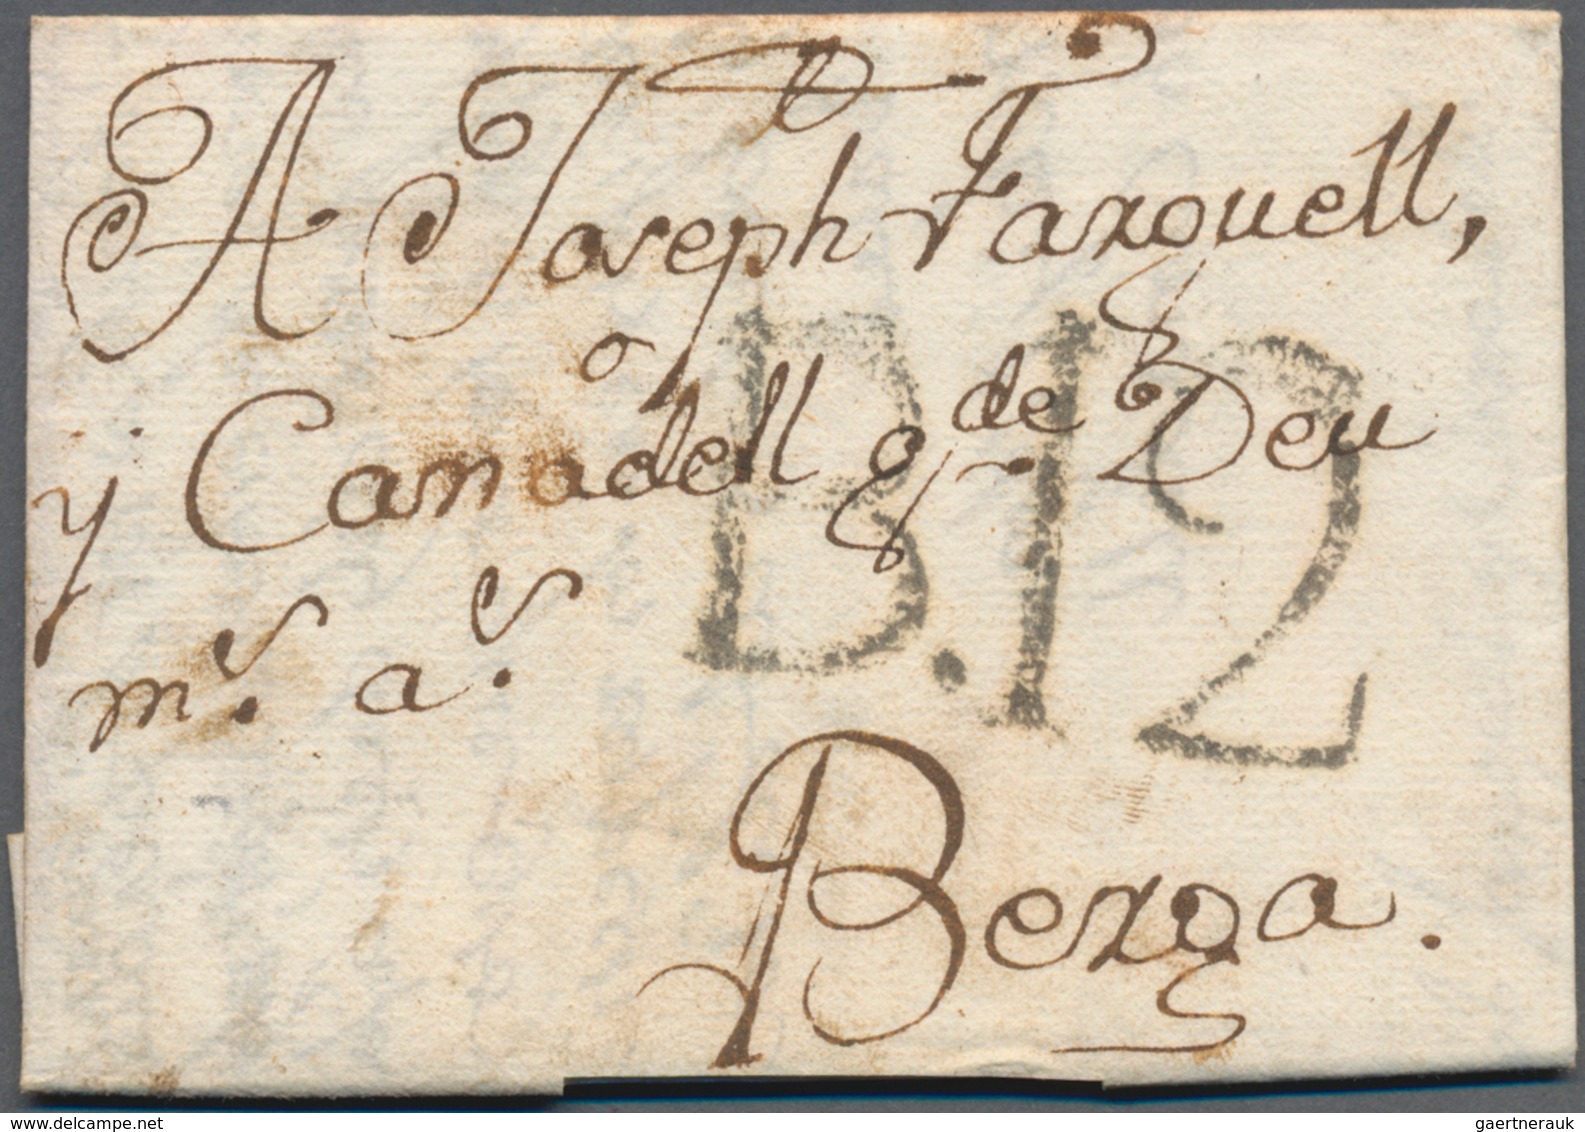 A Joseph Farguell,
y Canadell g.de Deu
m.s a.s
B.12
Berga.
www.delcampe.net
gaertnerauk